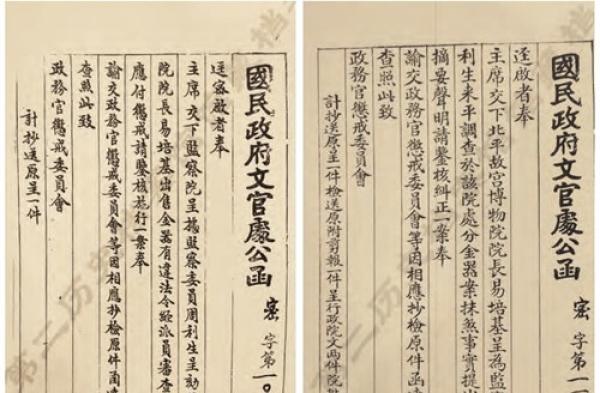 國民政府文官處公函 密 字第一〇
逕密啟者奉
主席交下監察院呈據監察委員周利生呈劾
院院長易培基出售金器有違法令經派員審查
應付懲戒請鑒核施行一案奉
諭交政務官懲戒委員會等因相應抄檢原件函
查照此致
政務官懲戒委員會
計抄送原呈一件
國民政府文官處公函 密 字第一
逕啟者奉
主席交下北平故宮博物院院長易培基呈為監
利生來平調查於該院處分金器案抹煞事實提
摘要聲明請鑒核糾正一案奉
諭交政務官懲戒委員會等因相應抄檢原件函
查照此致
政務官懲戒委員會
計抄送原呈一件檢送原附剪報一件呈行政院文兩件院